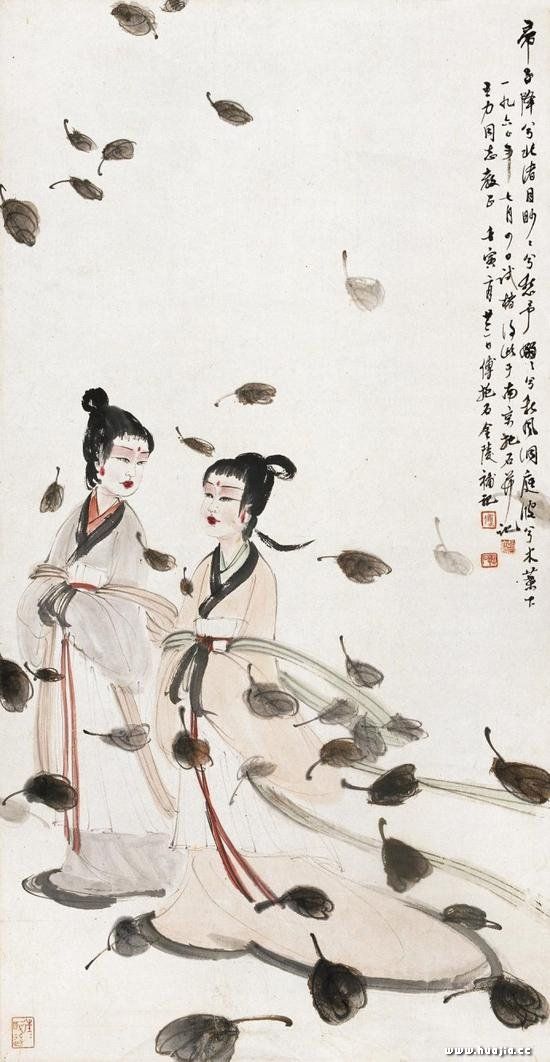 帝子降兮北渚目眇々兮愁予嫋々兮秋風洞庭波兮木葉下
一九六〇年七月四日试得此于南京抱石并记
王力同志教正 壬寅月日傅抱石金陵補記
www.huajia.cc